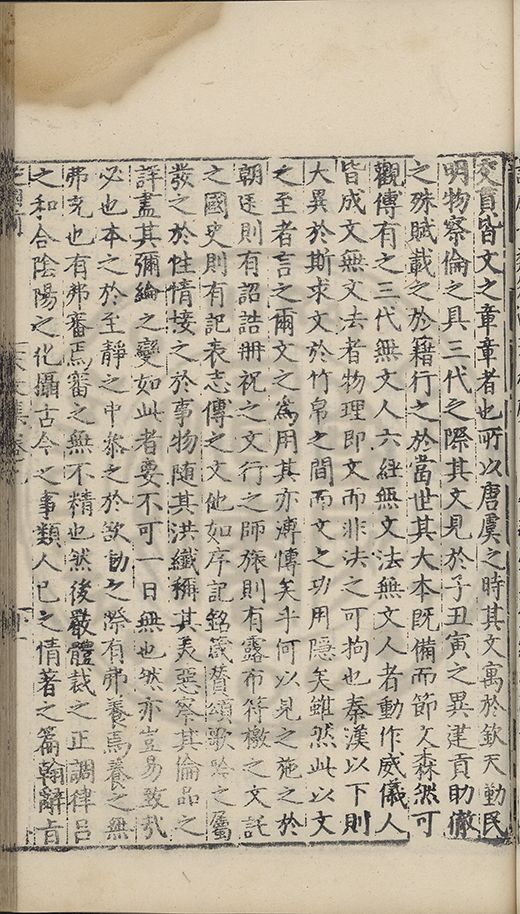 交貫皆文之章章者也所以唐虞之時其文寓於欽天勤民
明物察倫之具三代之際其文見於子丑寅之異建貢助徹
之殊賦載之於籍行之於當世其大本既備而節文森然可
觀傳有之三代無文人六經無文法無文人者動作威儀人
皆成文無文法者物理即文而非法之可拘也秦漢以下則
大異於斯求文於竹帛之間而文之功用隱矣雖然此以文
之至者言之爾文之為用其亦溥愽矣乎何以見之施之於
朝廷則有詔誥冊祝之文行之師旅則有露布符檄之文託
之國史則有記表志傳之文他如序記銘箴賛頌歌吟之屬
發之於性情接之於事物隨其洪纖稱其美惡察其倫品之
詳盡其彌綸之變如此者要不可一日無也然亦豈易致哉
必也本之於至靜之中叅之於欲動之際有弗養焉養之無
弗充也有弗審焉審之無不精也然後嚴體裁之正調律呂
之和合陰陽之化攝古今之事類人已之情著之篇翰辭旨